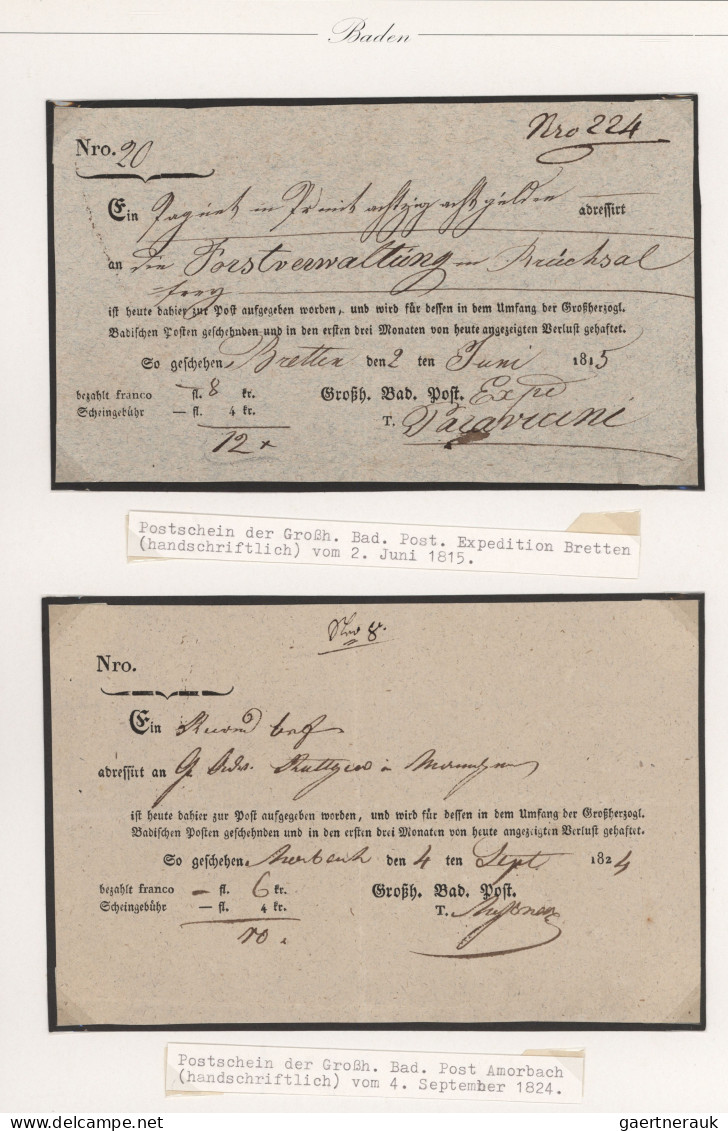 Baden
Nro 224
Nro. 20
Ein Paquet in Pr mit achtzig acht gulden adressirt
an die Forstverwaltung in Bruchsal
frey
ist heute dahier zur Post aufgegeben worden, und wird für dessen in dem Umfang der Großherzogl.
Badischen Posten geschehnden und in den ersten drei Monaten von heute angezeigten Verlust gehaftet.
So geschehen Bretten den 2 ten Juni 1815
bezahlt franco — fl. 8 kr. Großh. Bad. Post. Expd
Scheingebühr — fl. 4 kr. T. Paravicini
12 x
Postschein der Großh. Bad. Post. Expedition Bretten
(handschriftlich) vom 2. Juni 1815.
Nro 8.
Nro.
Ein
adressirt an
ist heute dahier zur Post aufgegeben worden, und wird für dessen in dem Umfang der Großherzogl.
Badischen Posten geschehnden und in den ersten drei Monaten von heute angezeigten Verlust gehaftet.
So geschehen Amorbach den 4 ten Sept. 1824
bezahlt franco — fl. 6 kr. Großh. Bad. Post.
Scheingebühr — fl. 4 kr. T.
10
Postschein der Großh. Bad. Post Amorbach
(handschriftlich) vom 4. September 1824.
gaertnerauk